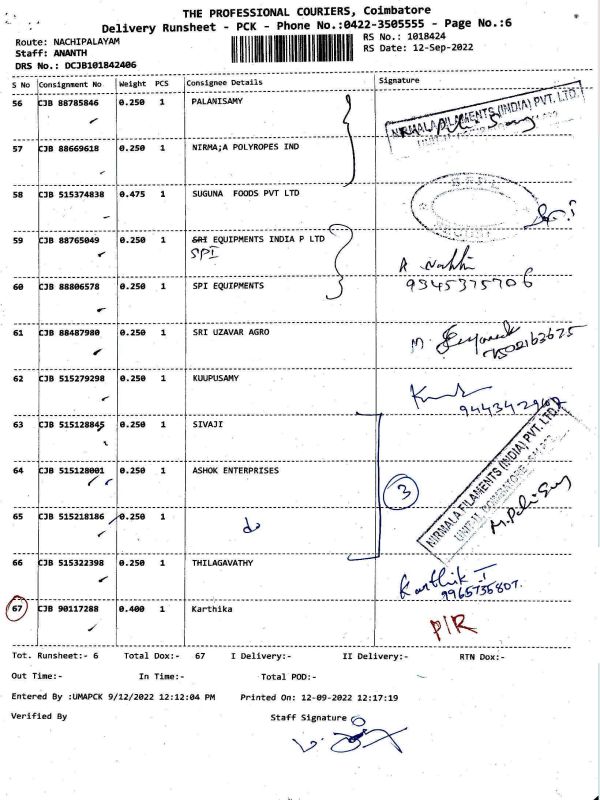 THE PROFESSIONAL COURIERS, Coimbatore
Delivery Runsheet - PCK - Phone No.:0422-3505555 - Page No.:6
Route: NACHIPALAYAM RS No.: 1018424
Staff: ANANTH RS Date: 12-Sep-2022
DRS No.: DCJB101842406
S No Consignment No Weight PCS Consignee Details Signature
56 CJB 88785846 0.250 1 PALANISAMY
NIRMALA FILAMENTS (INDIA) PVT. LTD.
57 CJB 88669618 0.250 1 NIRMA;A POLYROPES IND
58 CJB 515374838 0.475 1 SUGUNA FOODS PVT LTD
59 CJB 88765049 0.250 1 SRI EQUIPMENTS INDIA P LTD
SPI
60 CJB 88806578 0.250 1 SPI EQUIPMENTS 9345375706
61 CJB 88487980 0.250 1 SRI UZAVAR AGRO
62 CJB 515279298 0.250 1 KUUPUSAMY
63 CJB 515128845 0.250 1 SIVAJI
64 CJB 515128001 0.250 1 ASHOK ENTERPRISES 3
NIRMALA FILAMENTS (INDIA) PVT. LTD.
65 CJB 515218186 0.250 1 do
66 CJB 515322398 0.250 1 THILAGAVATHY Karthik I
9965735807.
67 CJB 90117288 0.400 1 Karthika P/R
Tot. Runsheet:- 6 Total Dox:- 67 I Delivery:- II Delivery:- RTN Dox:-
Out Time:- In Time:- Total POD:-
Entered By :UMAPCK 9/12/2022 12:12:04 PM Printed On: 12-09-2022 12:17:19
Verified By Staff Signature